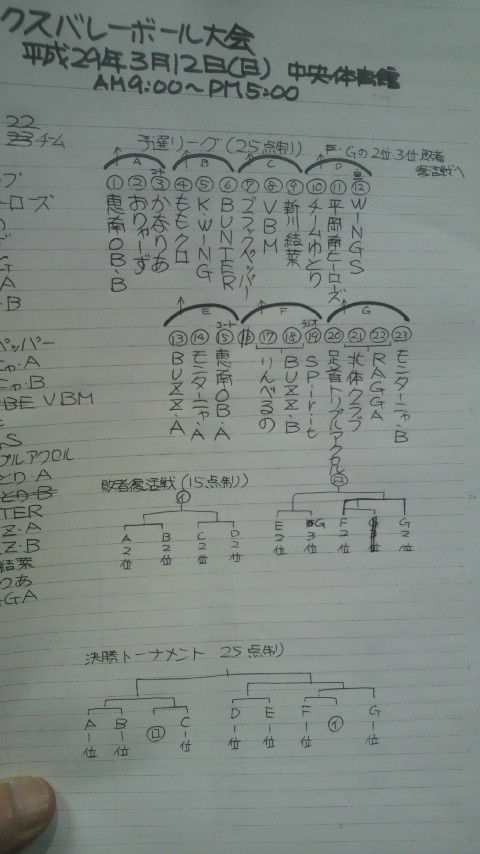 クスバレーボール大会
平成29年3月12日(日) 中央体育館
AM9:00～PM5:00
22
23チム
予選リーグ(25点制)
F・Gの2位3位敗者
復活戦へ
A B C D
① ② ③ ④ ⑤ ⑥ ⑦ ⑧ ⑨ ⑩ ⑪ ⑫
恵南OB・B
おりゃーず
かなりあ
ももクロ
K・WING
BUNTER
ブラックペッパー
VBM
新川結菜
チームゆとり
平岡南ヒーローズ
WINGS
E F G
⑬ ⑭ ⑮ ⑰ ⑱ ⑲ ⑳ ㉑ ㉒ ㉓
BUZZ・A
モニターニャ・A
恵南OB・A
りんべるの
BUZZ・B
SPirit
足首トリプルアクロル
北体クラブ
RAGGA
モニターニャ・B
ーローズ
G
A
・B
ペッパー
ニャ・A
ニャ・B
BE VBM
S
プルアクロル
とり・A
とり・B
TER
Z・A
Z・B
結菜
りあ
GGA
敗者復活戦(15点制)
イ
ロ
A2位 B2位 C2位 D2位
E2位 G3位 F2位 G2位
決勝トーナメント 25点制)
A1位 B1位 ロ C1位 D1位 E1位 F1位 イ G1位